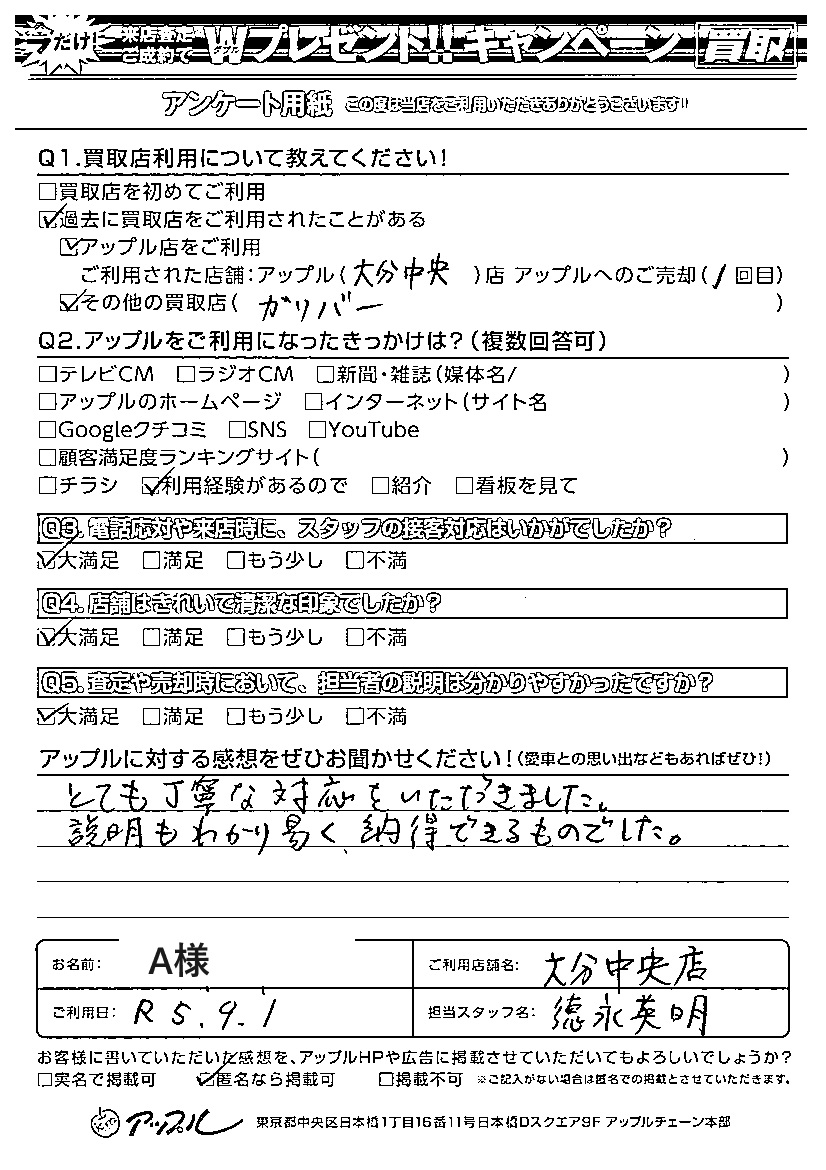 今だけ! 来店査定 ご成約で Wプレゼント!! キャンペーン 買取
アンケート用紙 この度は当店をご利用いただきありがとうございます!!
Q1.買取店利用について教えてください!
□買取店を初めてご利用
☑過去に買取店をご利用されたことがある
☑アップル店をご利用
ご利用された店舗:アップル(大分中央)店 アップルへのご売却(1回目)
☑その他の買取店(ガリバー)
Q2.アップルをご利用になったきっかけは?(複数回答可)
□テレビCM □ラジオCM □新聞・雑誌(媒体名/ )
□アップルのホームページ □インターネット(サイト名 )
□Googleクチコミ □SNS □YouTube
□顧客満足度ランキングサイト( )
□チラシ ☑利用経験があるので □紹介 □看板を見て
Q3.電話応対や来店時に、スタッフの接客対応はいかがでしたか?
☑大満足 □満足 □もう少し □不満
Q4.店舗はきれいで清潔な印象でしたか?
☑大満足 □満足 □もう少し □不満
Q5.査定や売却時において、担当者の説明は分かりやすかったですか?
☑大満足 □満足 □もう少し □不満
アップルに対する感想をぜひお聞かせください!(愛車との思い出などもあればぜひ!)
とても丁寧な対応をいただきました。
説明もわかり易く、納得できるものでした。
お名前: A様 ご利用店舗名: 大分中央店
ご利用日: R5.9.1 担当スタッフ名: 徳永英明
お客様に書いていただいた感想を、アップルHPや広告に掲載させていただいてもよろしいでしょうか?
□実名で掲載可 ☑匿名なら掲載可 □掲載不可 ※ご記入がない場合は匿名での掲載とさせていただきます。
アップル 東京都中央区日本橋1丁目16番11号日本橋Dスクエア9F アップルチェーン本部